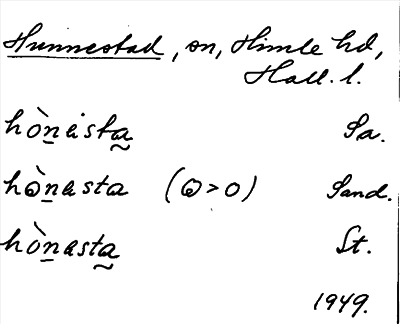 Hunnestad, sn, Himle hd,
Hall. l.
hò̱nesta̰ Sa.
hὼ̱nesta (ω>o) Sand.
hò̱nesta̰ St.
1949.